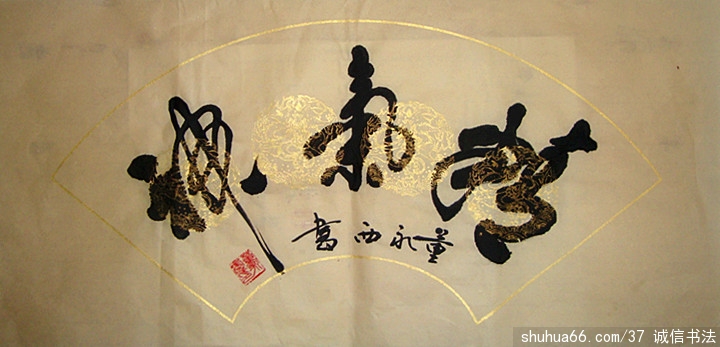 精氣神
董永西書
shuhua66.com/37 诚信书法